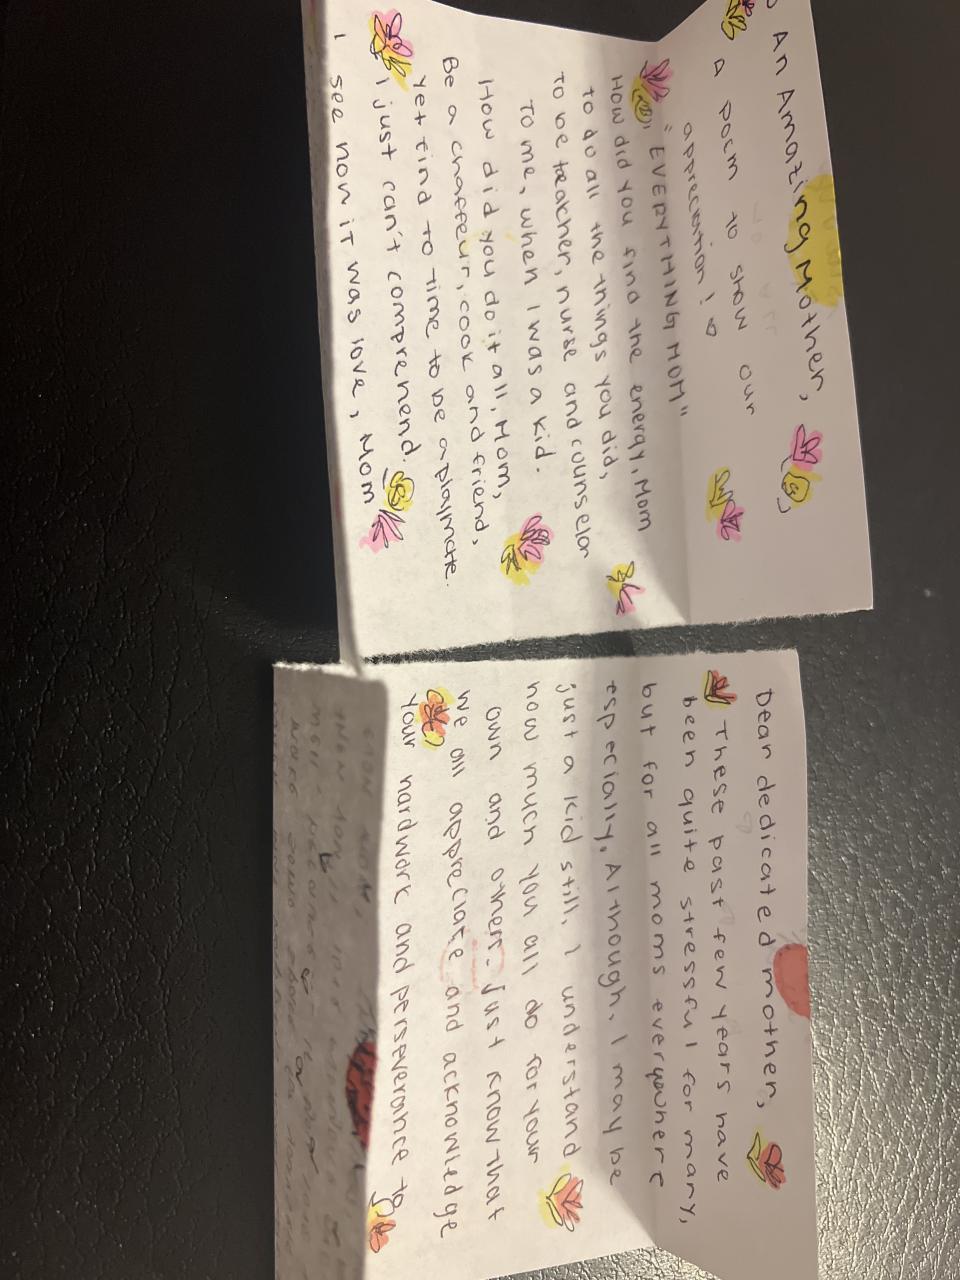 An Amazing Mother,
A poem to show our
appreciation!
"EVERYTHING MOM"
How did you find the energy, Mom
to do all the things you did,
to be teacher, nurse and counselor
to me, when I was a kid.
How did you do it all, Mom,
Be a chaffeur, cook and friend,
yet find to time to be a playmate.
I just can't comprehend.
I see now it was love, Mom
Dear dedicated mother,
These past few years have
been quite stressful for many,
but for all moms everywhere
especially. Although, I may be
just a kid still, I understand
how much you all do for your
own and others. Just know that
we all appreciate and acknowledge
your hardwork and perseverance to